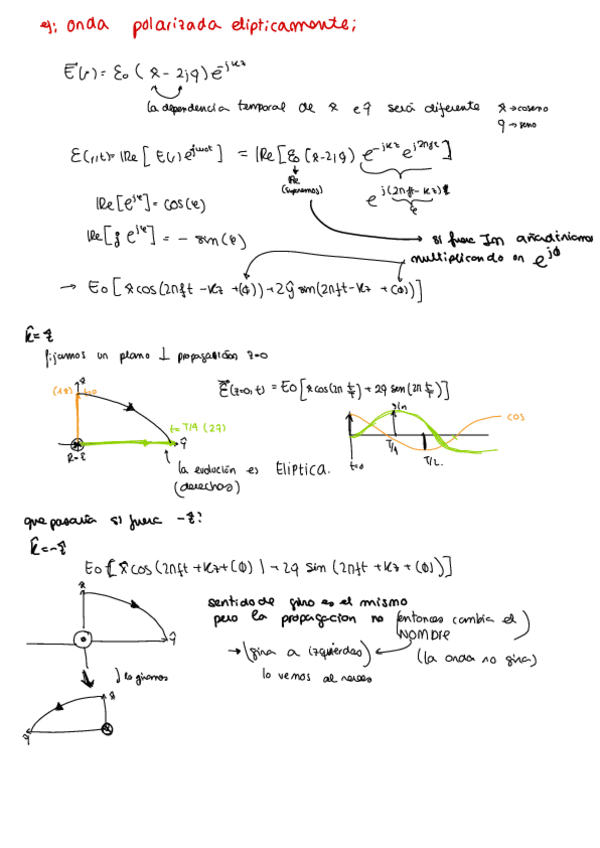 ej: onda polarizada elipticamente;
E(r) = E0 (x̂ - 2jŷ) e^-jkz
la dependencia temporal de x̂ e ŷ será diferente x̂ → coseno
ŷ → seno
E(r,t) = Re[ E(r) e^jwt ] = Re[ E0 (x̂-2jŷ) e^-jkz e^j2πft ]
Re
(suponemos)
e^j(2πft - kz)
φ
Re[e^jφ] = cos(φ)
Re[j e^jφ] = - sin(φ)
→ si fuese Im añadiriamos
multiplicando en e^jϕ
→ E0 [ x̂ cos(2πft - kz +(ϕ)) + 2ŷ sin(2πft - kz + (ϕ)) ]
k̂ = ẑ
fijamos un plano ⊥ propagación z=0
E(z=0, t) = E0 [ x̂ cos(2π t/T) + 2ŷ sen(2π t/T) ]
x̂
(1x̂) t=0
sin
cos
t = T/4 (2ŷ)
ŷ
k̂ = ẑ
t=0
T/4
T/2
la evolución es Elíptica.
(derechas)
que pasaría si fuera -ẑ?
k̂ = -ẑ
E0 [ x̂ cos(2πft + kz + (ϕ)) + 2ŷ sin(2πft + kz + (ϕ)) ]
x̂
ŷ
sentido de giro es el mismo
pero la propagacion no (entonces cambia el
NOMBRE)
→ (gira a izquierdas)
(la onda no gira)
lo vemos al reves
) lo giramos
x̂
ŷ